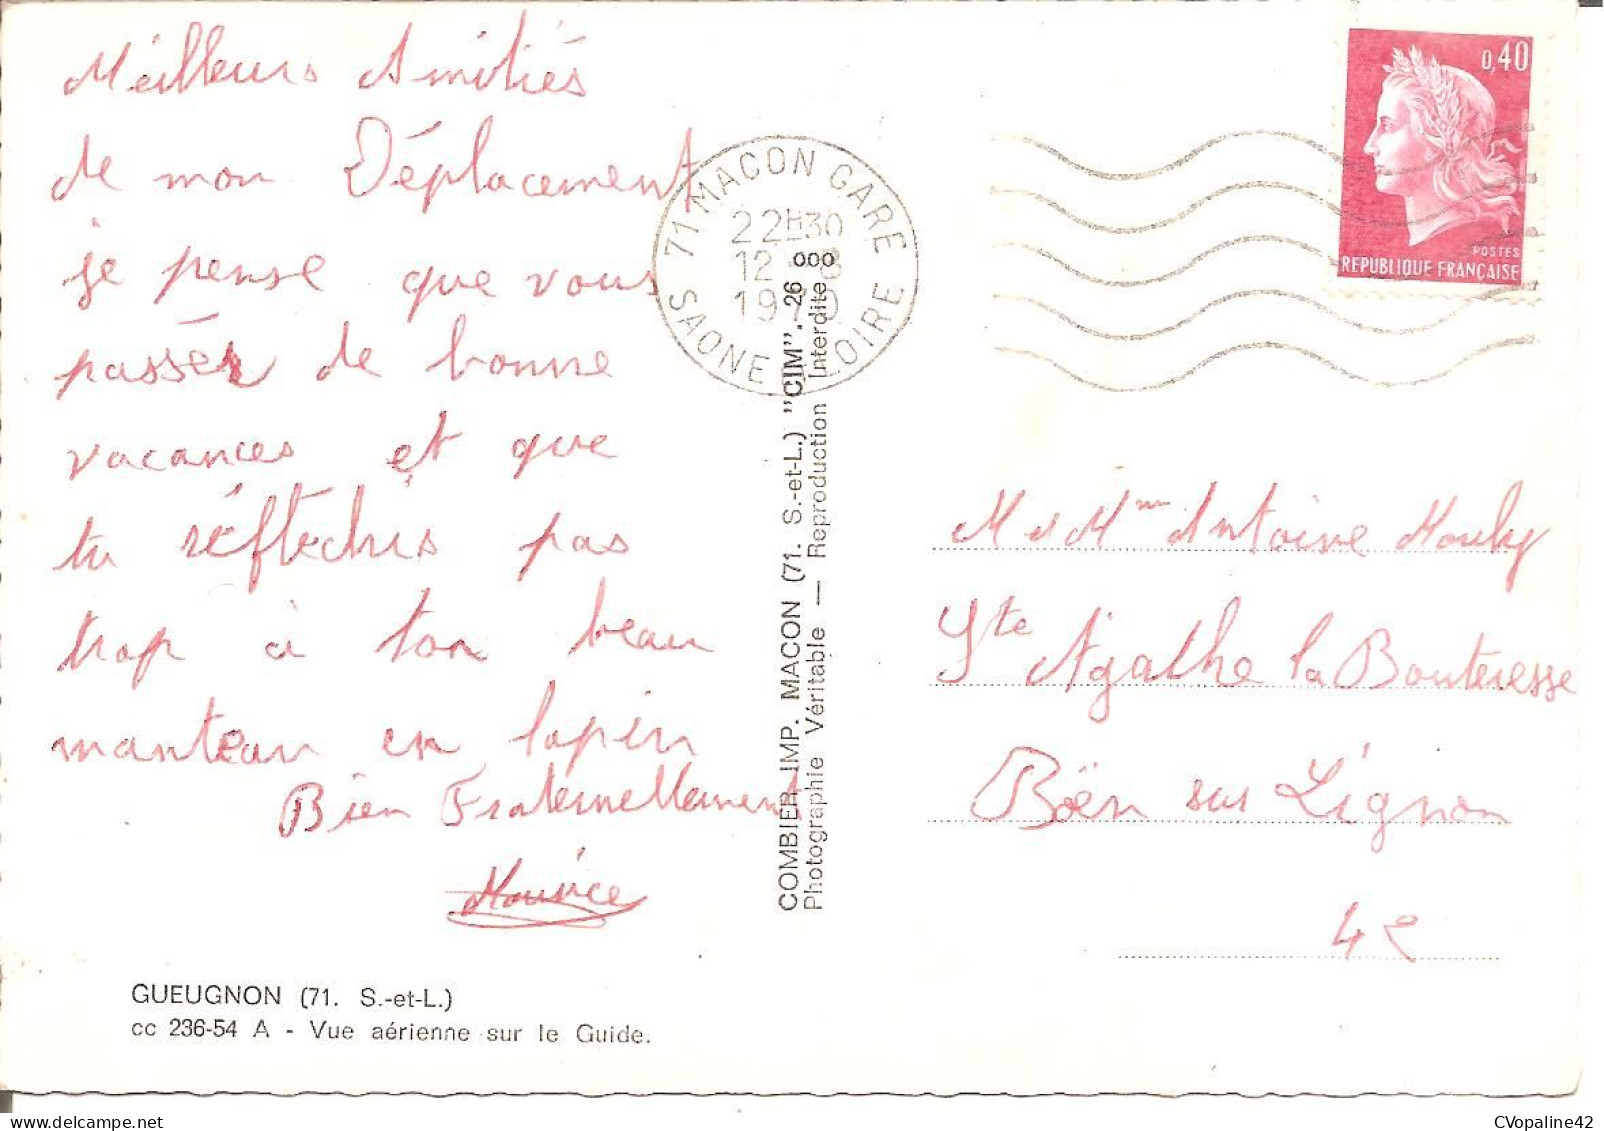 Meilleurs Amitiés
de mon Déplacement
je pense que vous
passér de bonne
vacances et que
tu réfléchis pas
trop à ton beau
manteau en lapin
Bien Fraternellement
Maurice
GUEUGNON (71. S.-et-L.)
cc 236-54 A - Vue aérienne sur le Guide.
COMBIER IMP. MACON (71. S.-et-L.) "CIM". 26 000
Photographie Véritable — Reproduction Interdite
71 MACON GARE
22H30
12 - 8
1970
SAONE LOIRE
0,40
POSTES
REPUBLIQUE FRANÇAISE
M et Mme Antoine
Ste Agathe la Bouteresse
Böën sur Lignon
42
CVopaline42